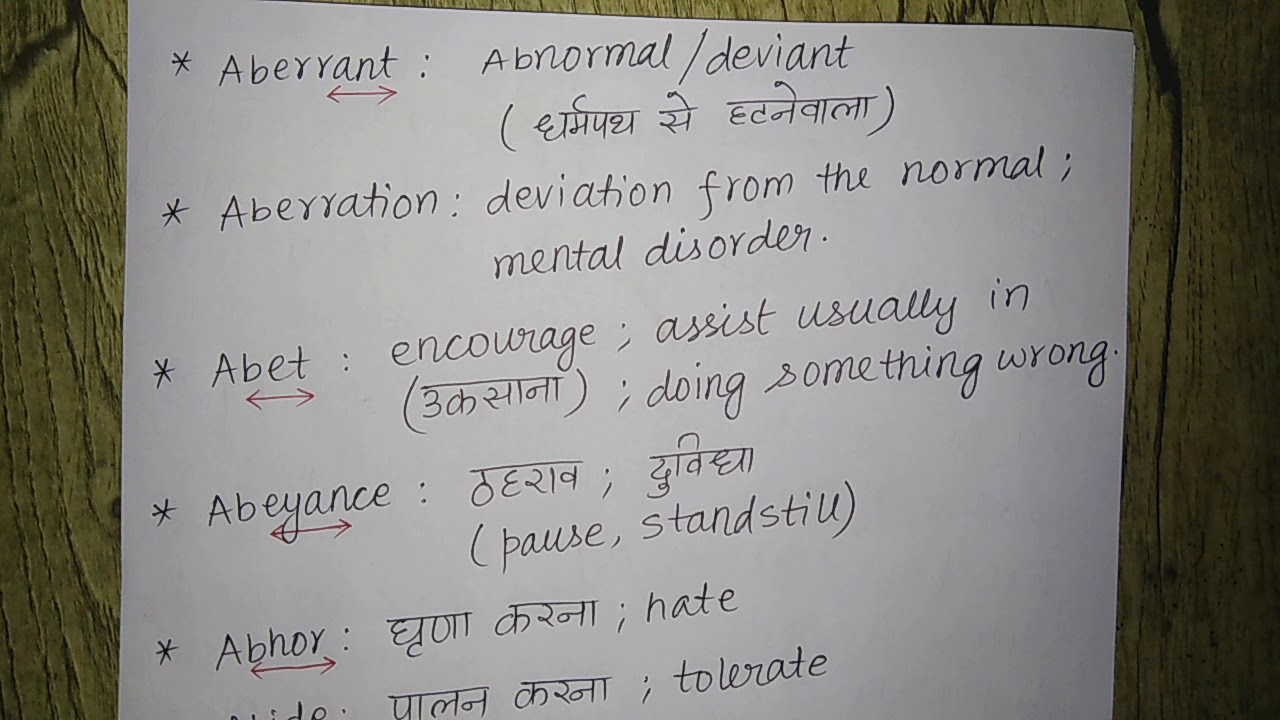 * Aberrant : Abnormal/deviant
(धर्मपथ से हटनेवाला)
* Aberration : deviation from the normal ;
mental disorder.
* Abet : encourage ; assist usually in
(उकसाना) ; doing something wrong.
* Abeyance : ठहराव ; दुविधा
(pause, standstill)
* Abhor : घृणा करना ; hate
पालन करना ; tolerate